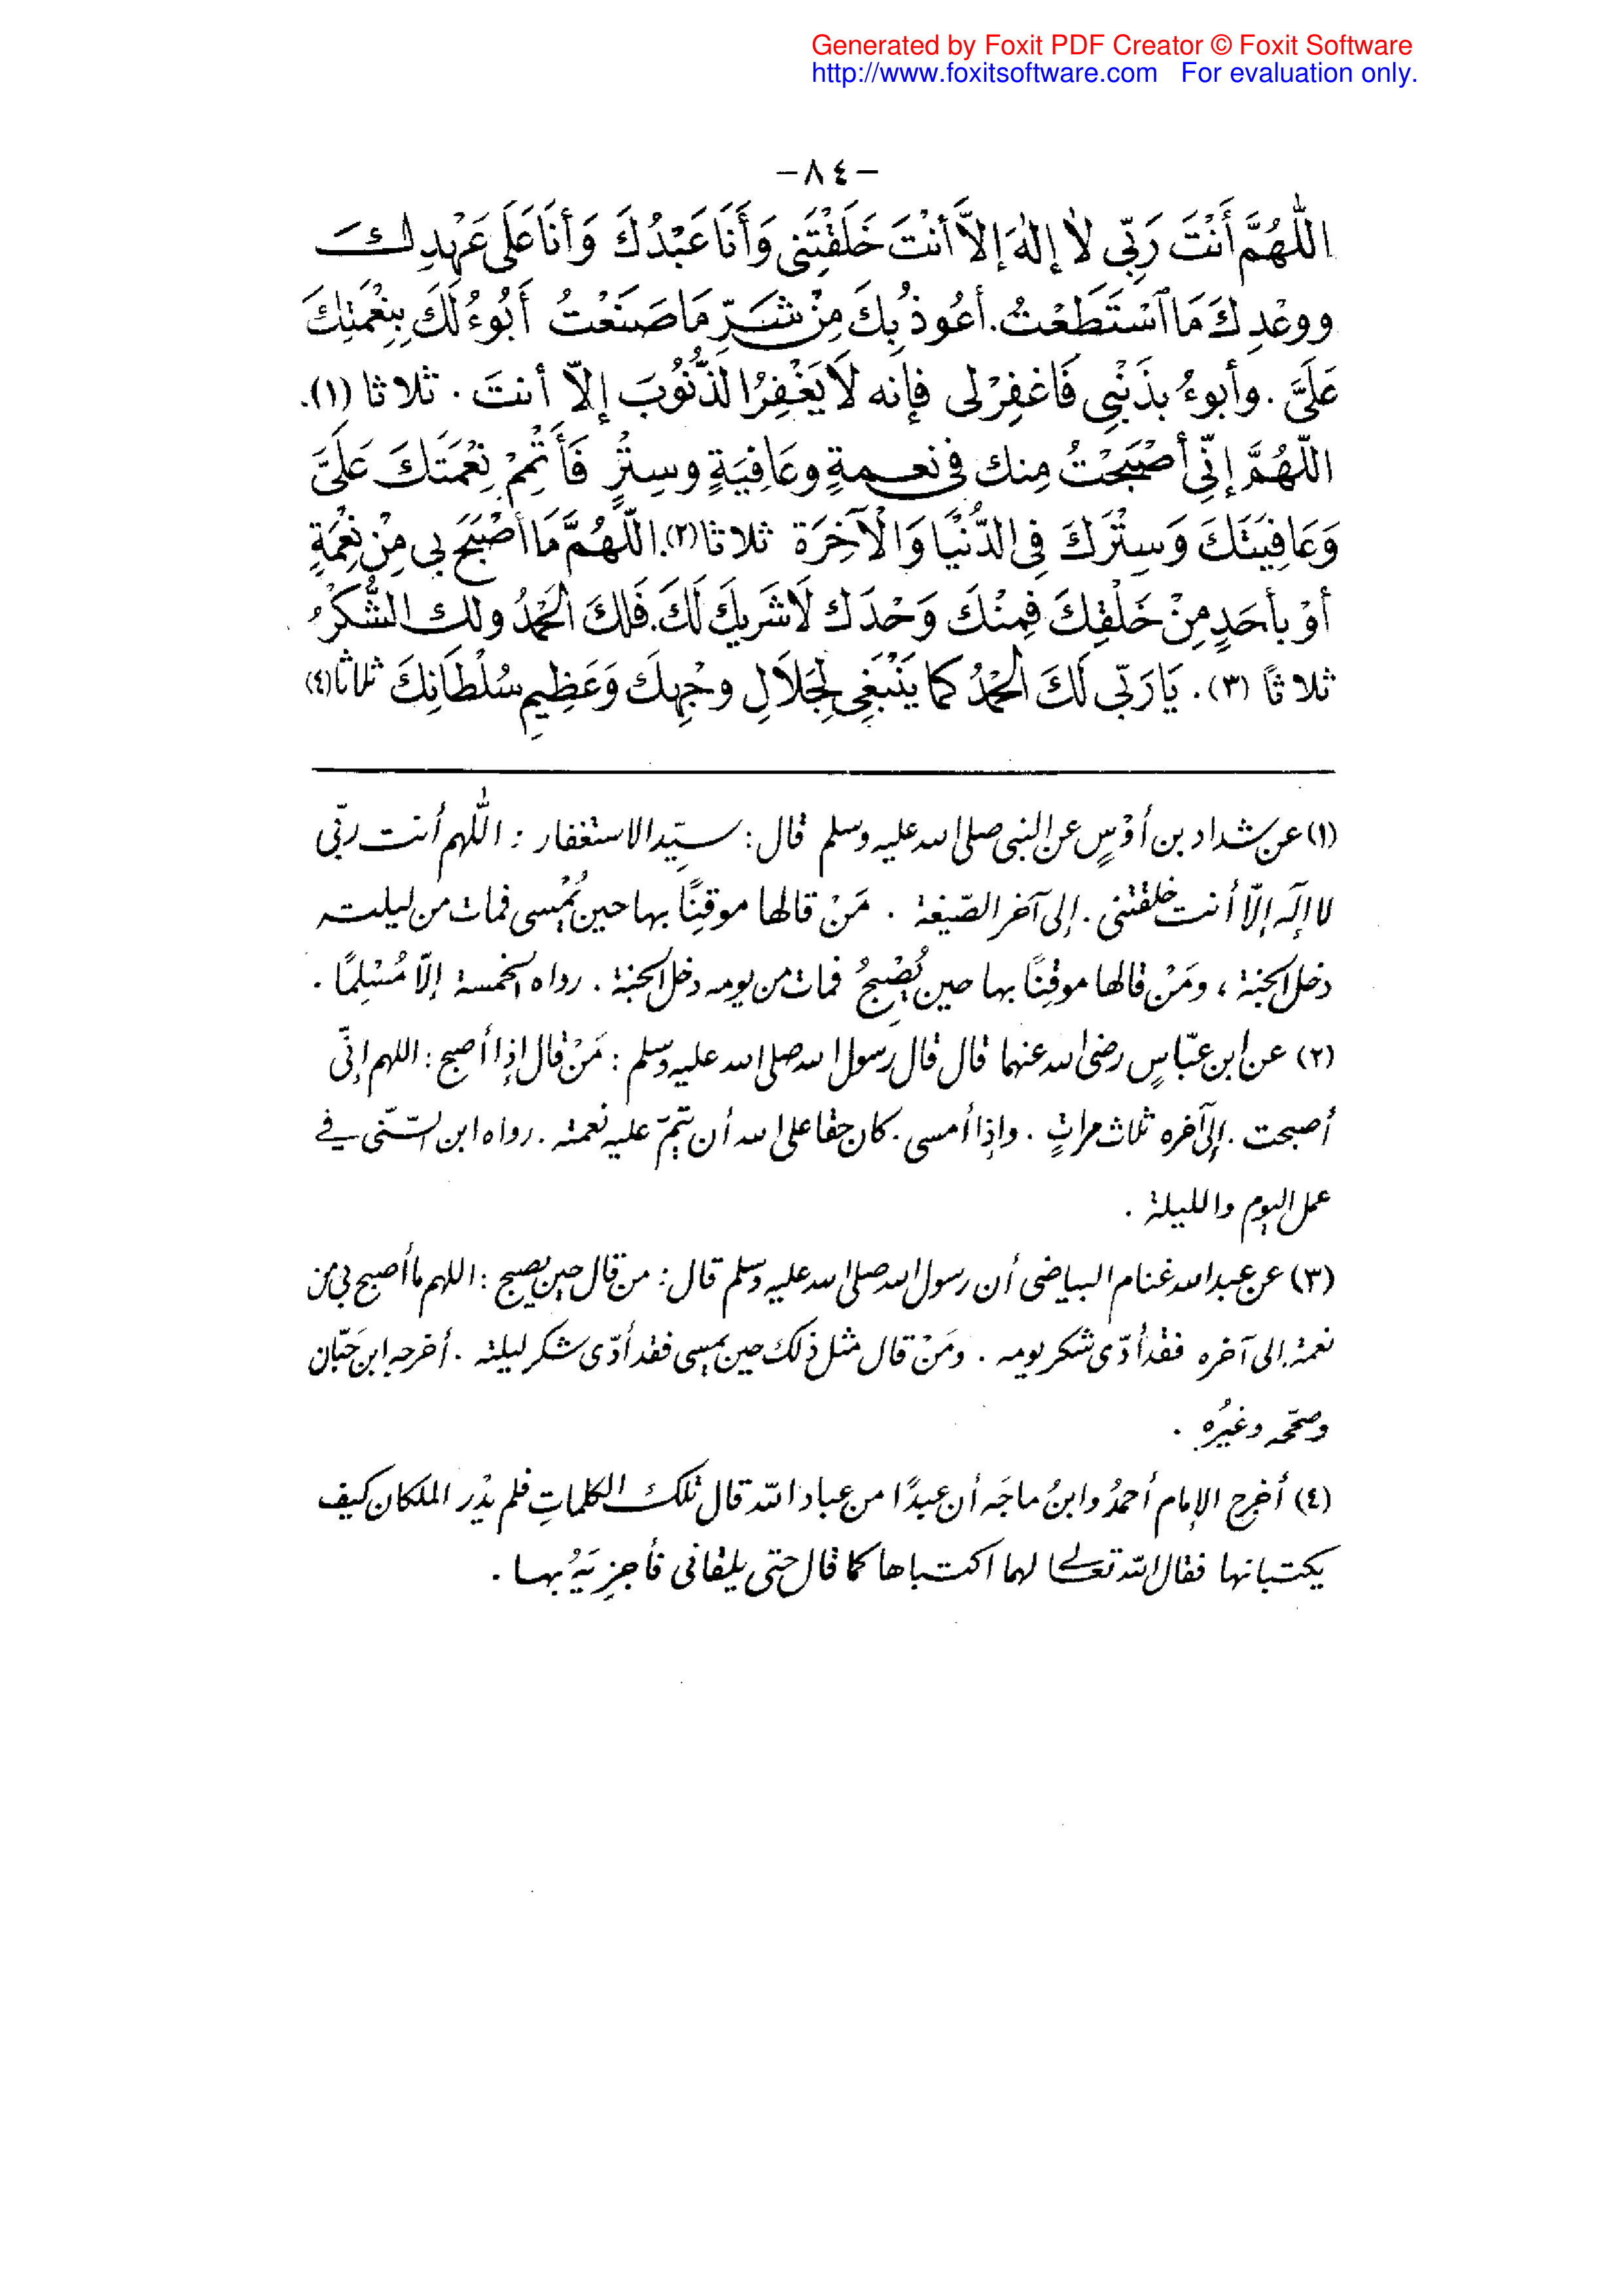 Generated by Foxit PDF Creator © Foxit Software
http://www.foxitsoftware.com For evaluation only.
-٨٤-
اللّٰهُمَّ أَنْتَ رَبِّي لا إلهَ إلاَّ أنْتَ خَلَقْتَنِي وَأَنَا عَبْدُكَ وَأنَا عَلَى عَهْدِكَ
ووعْدِكَ مَا ٱسْتَطَعْتُ. أعُوذُ بِكَ مِنْ شَرِّ مَا صَنَعْتُ أَبُوءُ لَكَ بِنِعْمَتِكَ
عَلَيَّ . وأبوءُ بذَنْبِي فَاغفِرْلى فإنه لَا يَغْفِرُ الذُّنُوبَ إلاّ أنتَ . ثلاثا (١).
اللّهُمَّ إنّي أصْبَحْتُ مِنك فى نعمةٍ وعَافِيَةٍ وسِتْرٍ فَأَتْمِمْ نِعْمَتَكَ عَلَيَّ
وَعَافِيَتَكَ وَسِتْرَكَ فِى الدُّنْيَا وَالْآخِرَة ثلاثا (٢). اللّهُمَّ مَا أصْبَحَ بى مِنْ نِعْمَةٍ
أوْ بأحَدٍ مِنْ خَلْقِكَ فَمِنْكَ وَحْدَك لَا شَرِيكَ لَكَ. فَلَكَ الحَمْدُ ولك الشُّكْرُ
ثلاثًا (٣). يَا رَبّى لَكَ الحَمْدُ كما يَنْبَغِى لِجَلَالِ وجْهِكَ وَعَظِيمِ سُلْطَانِكَ ثلاثًا (٤)
(١) عن شداد بن أوْسٍ عن النبى صلى الله عليه وسلم قال: سيّد الاستغفار : اللّٰهم أنت ربّى
لا إلٓه إلاّ أنت خلقتنى . إلى آخر الصّيغة . مَنْ قالها موقِنًا بها حين يُمْسى فمات من ليلته
دخل الجنة ، ومَنْ قالها موقِنًا بها حين يُصْبِحُ فمات من يومه دخل الجنة . رواه الخمسة إلّا مُسْلِمًا .
(٢) عن ابن عبّاسٍ رضى الله عنهما قال قال رسول الله صلى الله عليه وسلم : مَنْ قال إذا أصبح : اللهم إنّى
أصبحت . إلى آخره ثلاث مراتٍ . وإذا أمسى . كان حقا على الله أن يتمّ عليه نعمته . رواه ابن السّنّى في
عمل اليوم والليلة .
(٣) عن عبد الله غنام البياضى أن رسول الله صلى الله عليه وسلم قال : من قال حين يصبح : اللهم ما أصبح بى من
نعمة. إلى آخره فقد أدّى شكر يومه . ومَنْ قال مثل ذلك حين يمسى فقد أدّى شكر ليلته . أخرجه ابن حَبّان
وصحّحه وغيُره .
(٤) أخرج الإمام أحمدُ وابنُ ماجَه أن عبدًا من عباد الله قال تلك الكلماتِ فلم يدْر الملكان كيف
يكتبانها فقال الله تعالى لهما اكتباها كما قال حتى يلقانى فأجزِيَهُ بها .